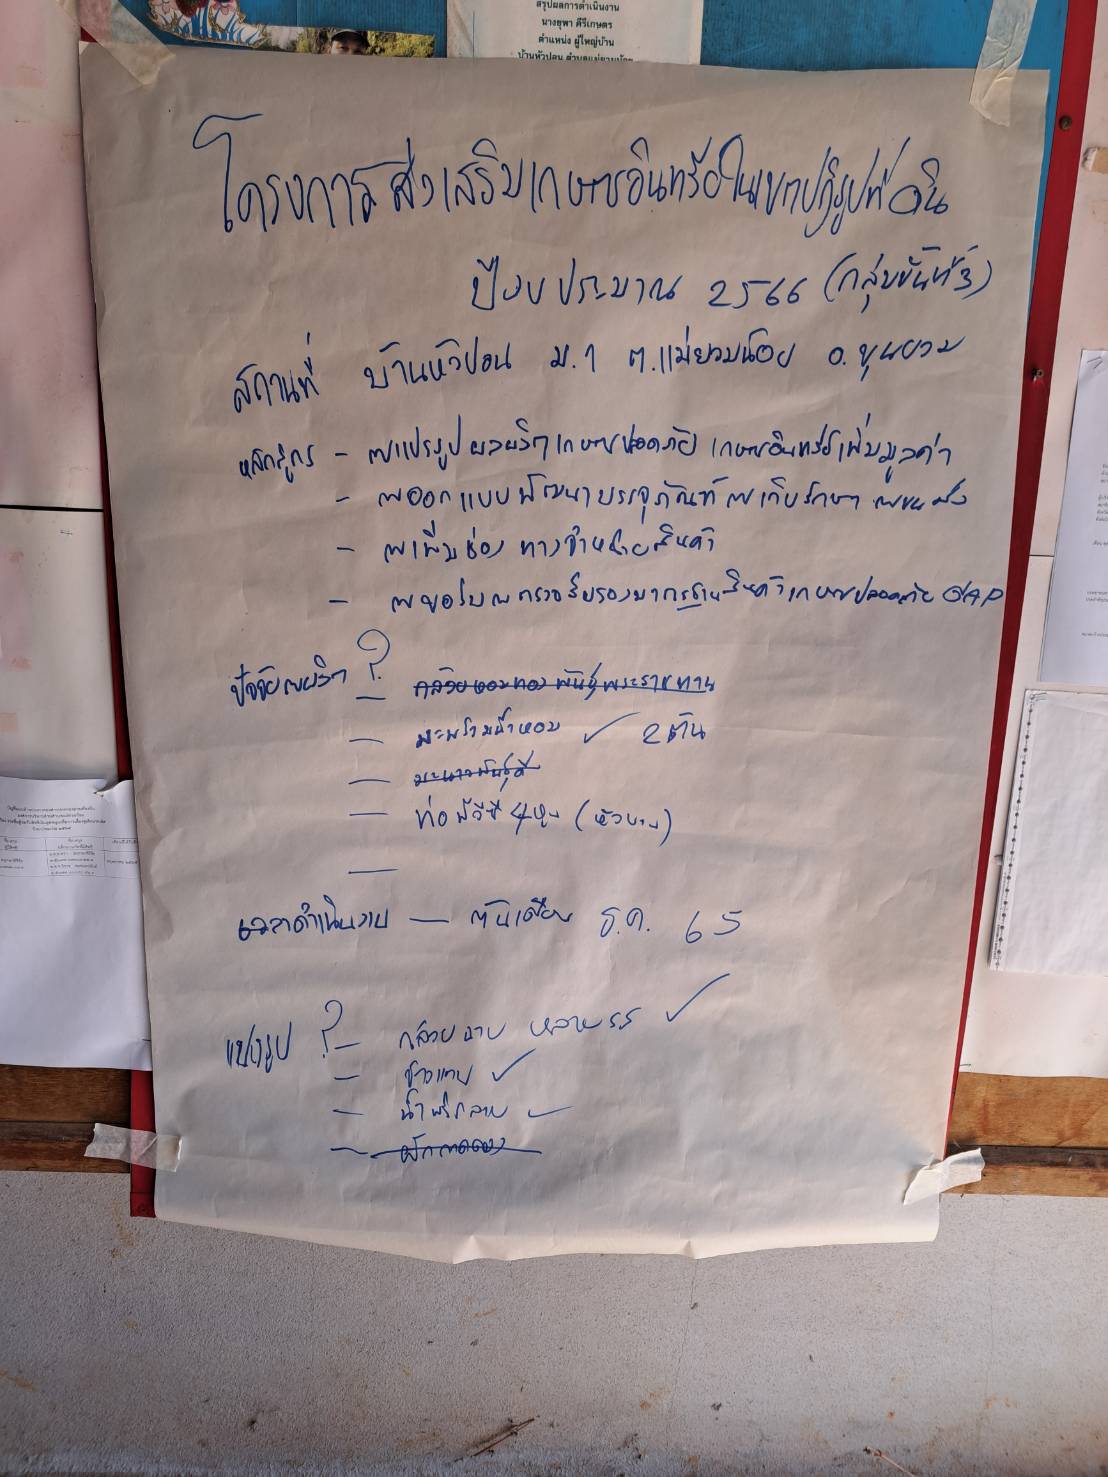 สรุปผลการดำเนินงาน
นางยุพา คีรีเกษตร
ตำแหน่ง ผู้ใหญ่บ้าน
โครงการส่งเสริมเกษตรอินทรีย์ในเขตปฏิรูปที่ดิน
ปีงบประมาณ 2566 (กลุ่มขั้นที่3)
สถานที่ บ้านหัวปอน ม.1 ต.แม่ยวมน้อย อ.ขุนยวม
หลักสูตร - กแปรรูปผลผลิตเกษตรปลอดภัย เกษตรอินทรีย์เพิ่มมูลค่า
- กออกแบบพัฒนาบรรจุภัณฑ์ กเก็บรักษา กขนส่ง
- กเพิ่มช่องทางจำหน่ายสินค้า
- กขอรับกตรวจรับรองมาตรฐานสินค้าเกษตรปลอดภัย GAP
ปัจจัยกผลิต ?
- กล้วยหอมทอง พันธุ์พระราชทาน
- มะพร้าวน้ำหอม ✓ 2 ต้น
- มะนาวพันธุ์ดี
- ท่อพีวีซี 4 หุน (หัวบาน)
-
เวลาดำเนินงาน - ต้นเดือน ธ.ค. 65
แปรรูป ? - กล้วยฉาบ หลายรส ✓
- ข้าวแตน ✓
- น้ำพริกลาบ ✓
- ผักกาดดอง